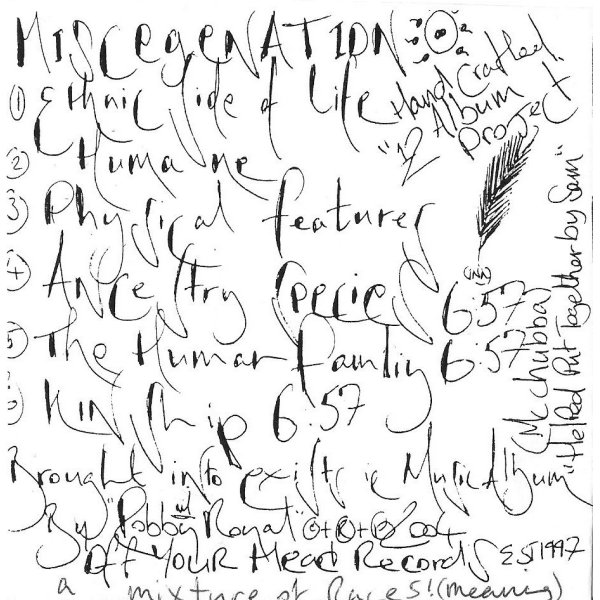 MISCEGENATION
① Ethnic Side of Life
② Humane
③ Physical features
④ Ancestry Species 6:57
⑤ The Human Family 6:57
Kinship 6:57
Brought into existence Music Album
By "Robby Royal" 2004
Off YOUR Head Records EST 1997
a mixture of Races! (meaning)
Hand Crafted
"12" Album
Project
Mc chubba
"Helped Put Together by Sam"